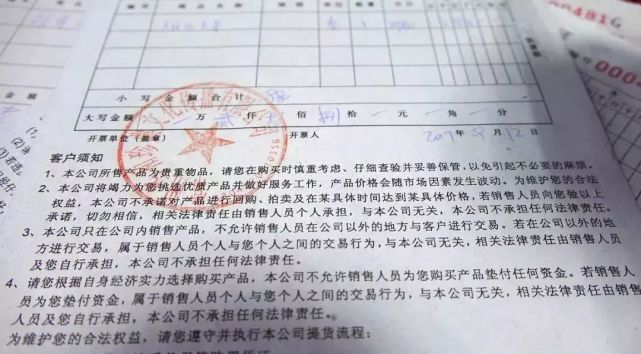 0004816
000
金额
货品名称
金额
小写金额合计
大写金额 万 仟 佰 拾 元 角 分
开票单位(盖章) 开票人 2017 8 12
客户须知
1、本公司所售产品为贵重物品，请您在购买时慎重考虑、仔细查验并妥善保管，以免引起不必要的麻烦。
2、本公司将竭力为您挑选优质产品并做好服务工作，产品价格会随市场因素发生波动。为维护您的合法
权益，本公司不承诺对产品进行回购、拍卖及在某具体时间达到某具体价格，若销售人员向您做以上
承诺，切勿相信，相关法律责任由销售人员个人承担，与本公司无关，本公司不承担任何法律责任。
3、本公司只在公司内销售产品，不允许销售人员在公司以外的地方与客户进行交易。若在公司以外的地
方进行交易，属于销售人员个人与您个人之间的交易行为，与本公司无关，相关法律责任由销售人员
及您自行承担，本公司不承担任何法律责任。
4、请您根据自身经济实力选择购买产品，本公司不允许销售人员为您购买产品垫付任何资金。若销售人
员为您垫付资金，属于销售人员个人与您个人之间的交易行为，与本公司无关，相关法律责任由销售
人员及您自行承担，本公司不承担任何法律责任。
为维护您的合法权益，请您遵守并执行本公司提货流程：